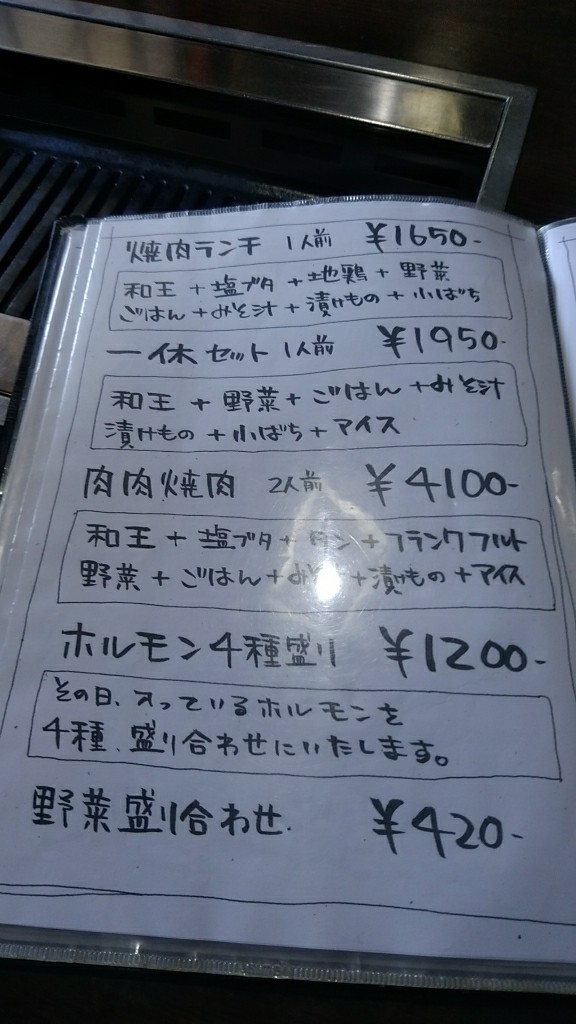 焼肉ランチ 1人前 ¥1650-
和王 + 塩ブタ + 地鶏 + 野菜
ごはん + みそ汁 + 漬けもの + 小ばち
一休セット 1人前 ¥1950-
和王 + 野菜 + ごはん + みそ汁
漬けもの + 小ばち + アイス
肉肉焼肉 2人前 ¥4100-
和王 + 塩ブタ + タン + フランクフルト
野菜 + ごはん + みそ汁 + 漬けもの + アイス
ホルモン4種盛り ¥1200-
その日、入っているホルモンを
4種、盛り合わせにいたします。
野菜盛り合わせ. ¥420-